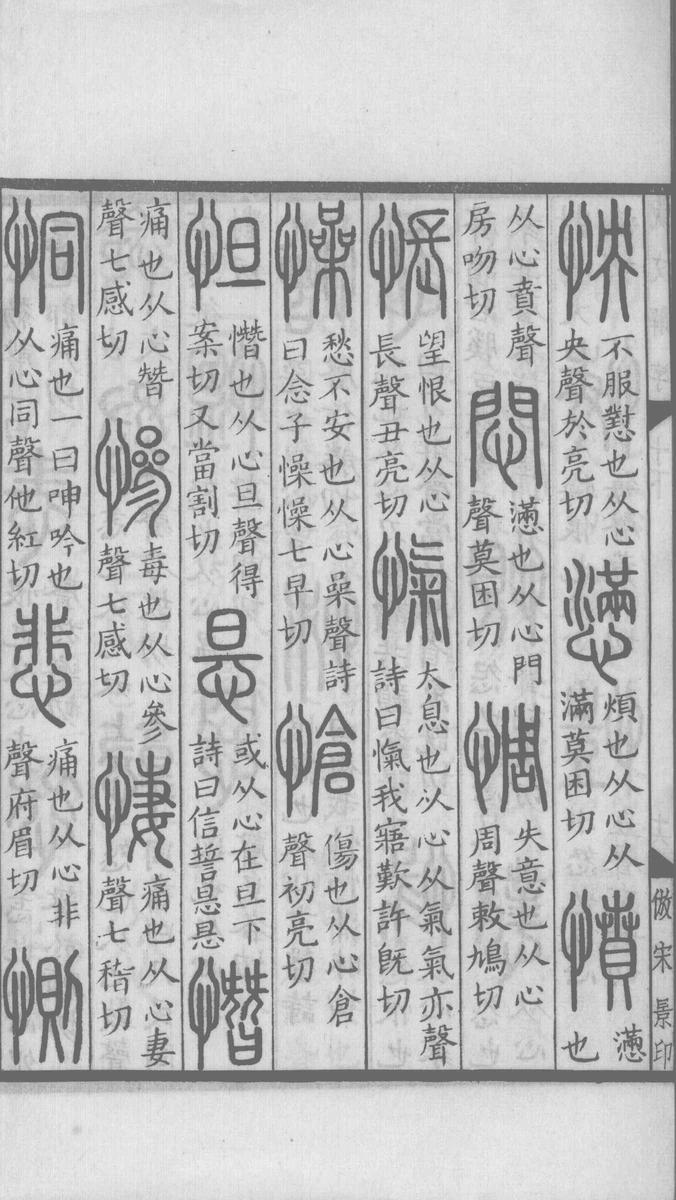 怏不服懟也从心央聲於亮切懣煩也从心从滿莫困切憤懣也
从心賁聲房吻切悶懣也从心門聲莫困切惆失意也从心周聲敕鳩切
悵望恨也从心長聲丑亮切愾太息也从心从氣氣亦聲詩曰愾我寤歎許旣切
懆愁不安也从心喿聲詩曰念子懆懆七早切愴傷也从心倉聲初亮切
怛憯也从心旦聲得案切又當割切𢘇或从心在旦下詩曰信誓𢘇𢘇憯
痛也从心朁聲七感切慘毒也从心參聲七感切悽痛也从心妻聲七稽切
恫痛也一曰呻吟也从心同聲他紅切悲痛也从心非聲府眉切惻
倣宋景印